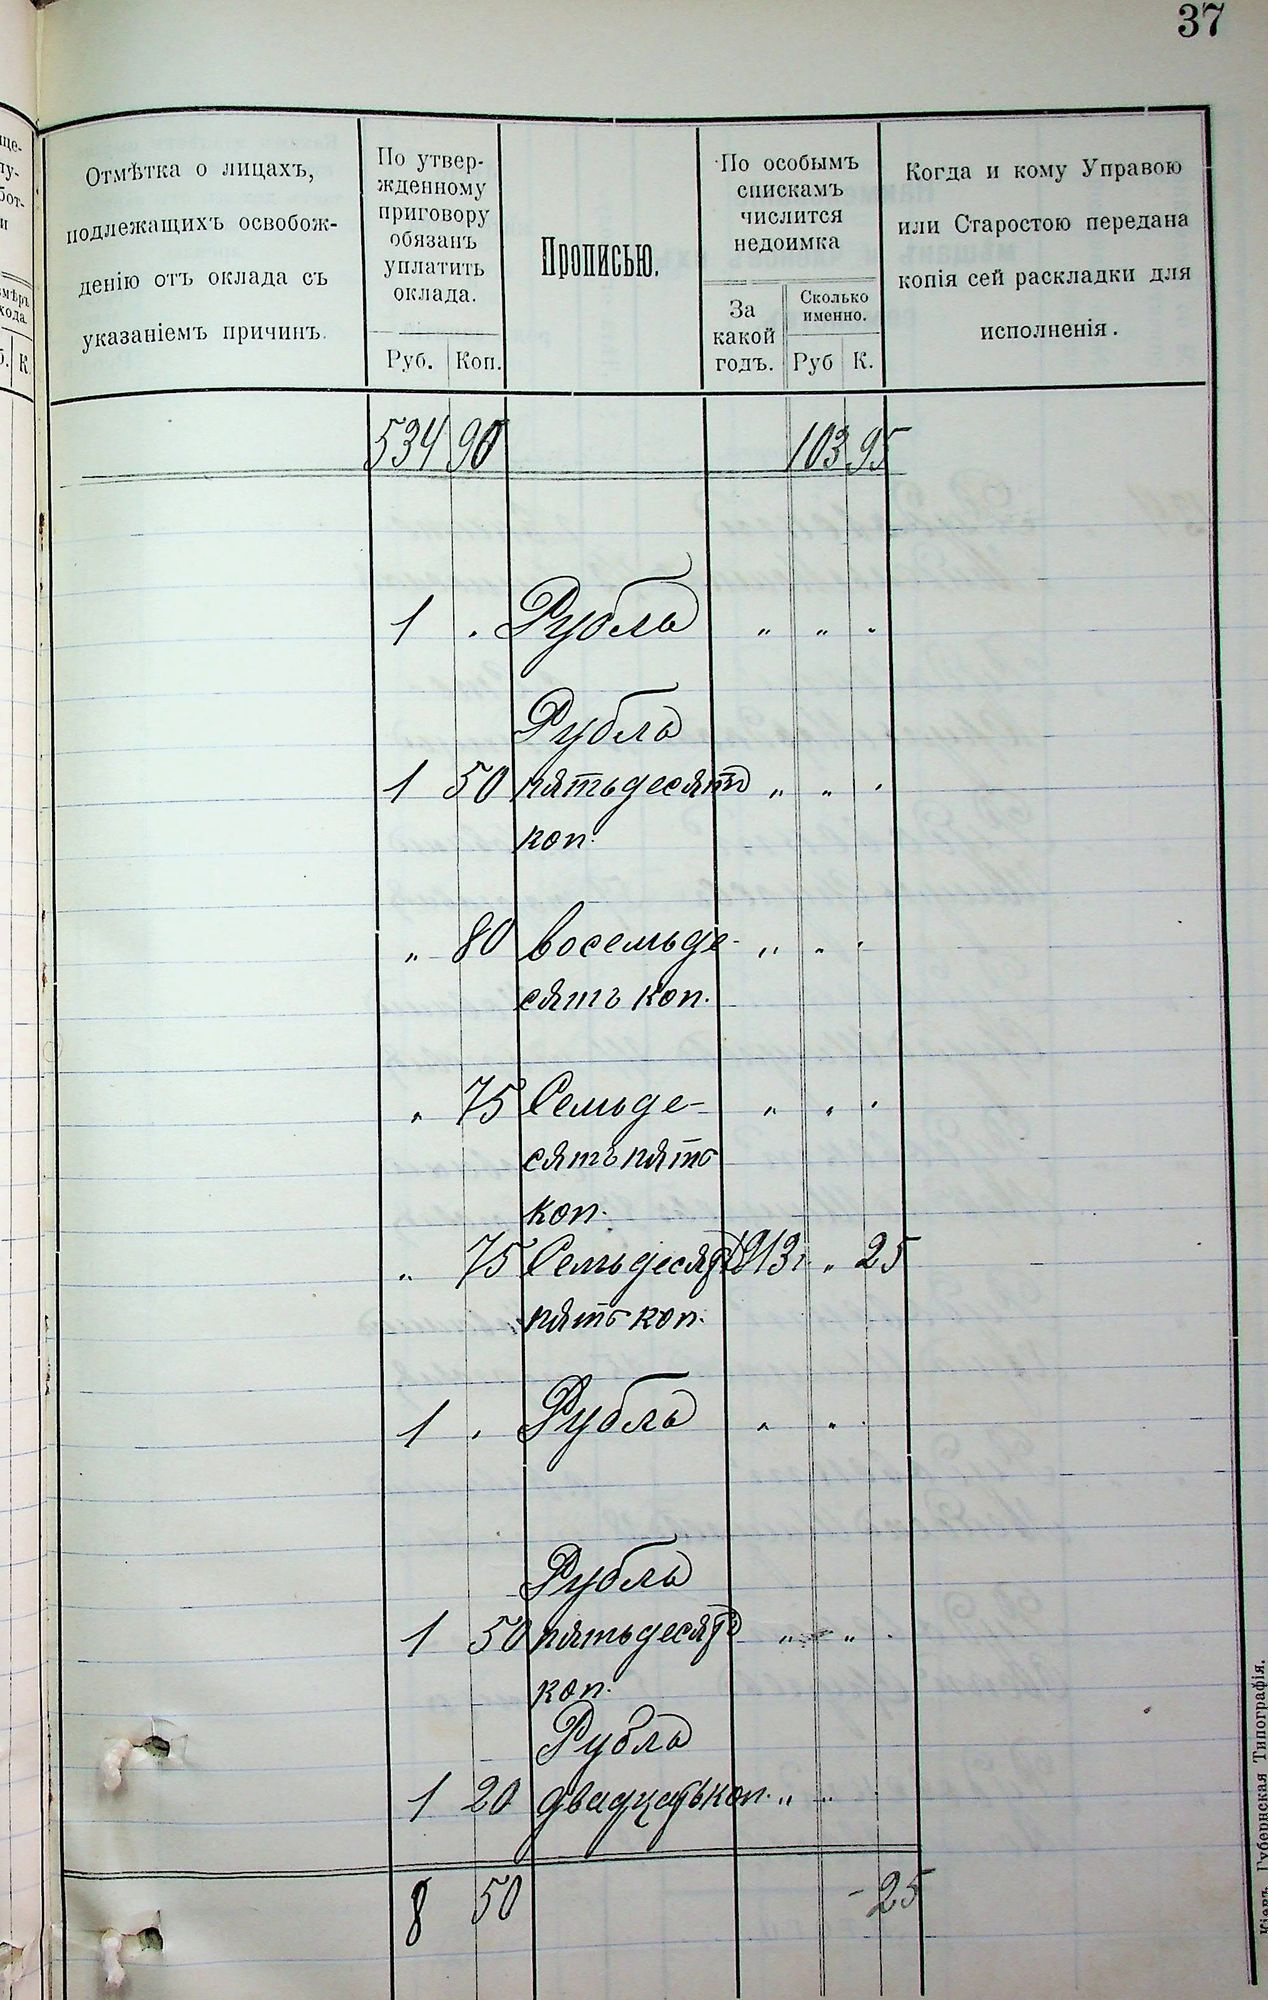 37
Отмѣтка о лицахъ,
подлежащихъ освобож-
денію отъ оклада съ
указаніемъ причинъ.
По утвер-
жденному
приговору
обязанъ
уплатить
оклада.
Руб. Коп.
Прописью.
По особымъ
спискамъ
числится
недоимка
За
какой
годъ.
Сколько
именно.
Руб К.
Когда и кому Управою
или Старостою передана
копія сей раскладки для
исполненія.
534 90 103 95
1 . Рубль " " "
Рубль
1 50 пятьдесятъ " " "
коп.
" 80 восемьде- " " "
сятъ коп.
" 75 Семьде- " " "
сятъ пять
коп.
" 75 Семьдесятъ 1913 г. " 25
пять коп.
1 . Рубль " "
Рубль
1 50 пятьдесятъ " "
коп.
Рубль
1 20 двадцать коп. " "
8 50 - 25
Кіевъ. Губернская Типографія.